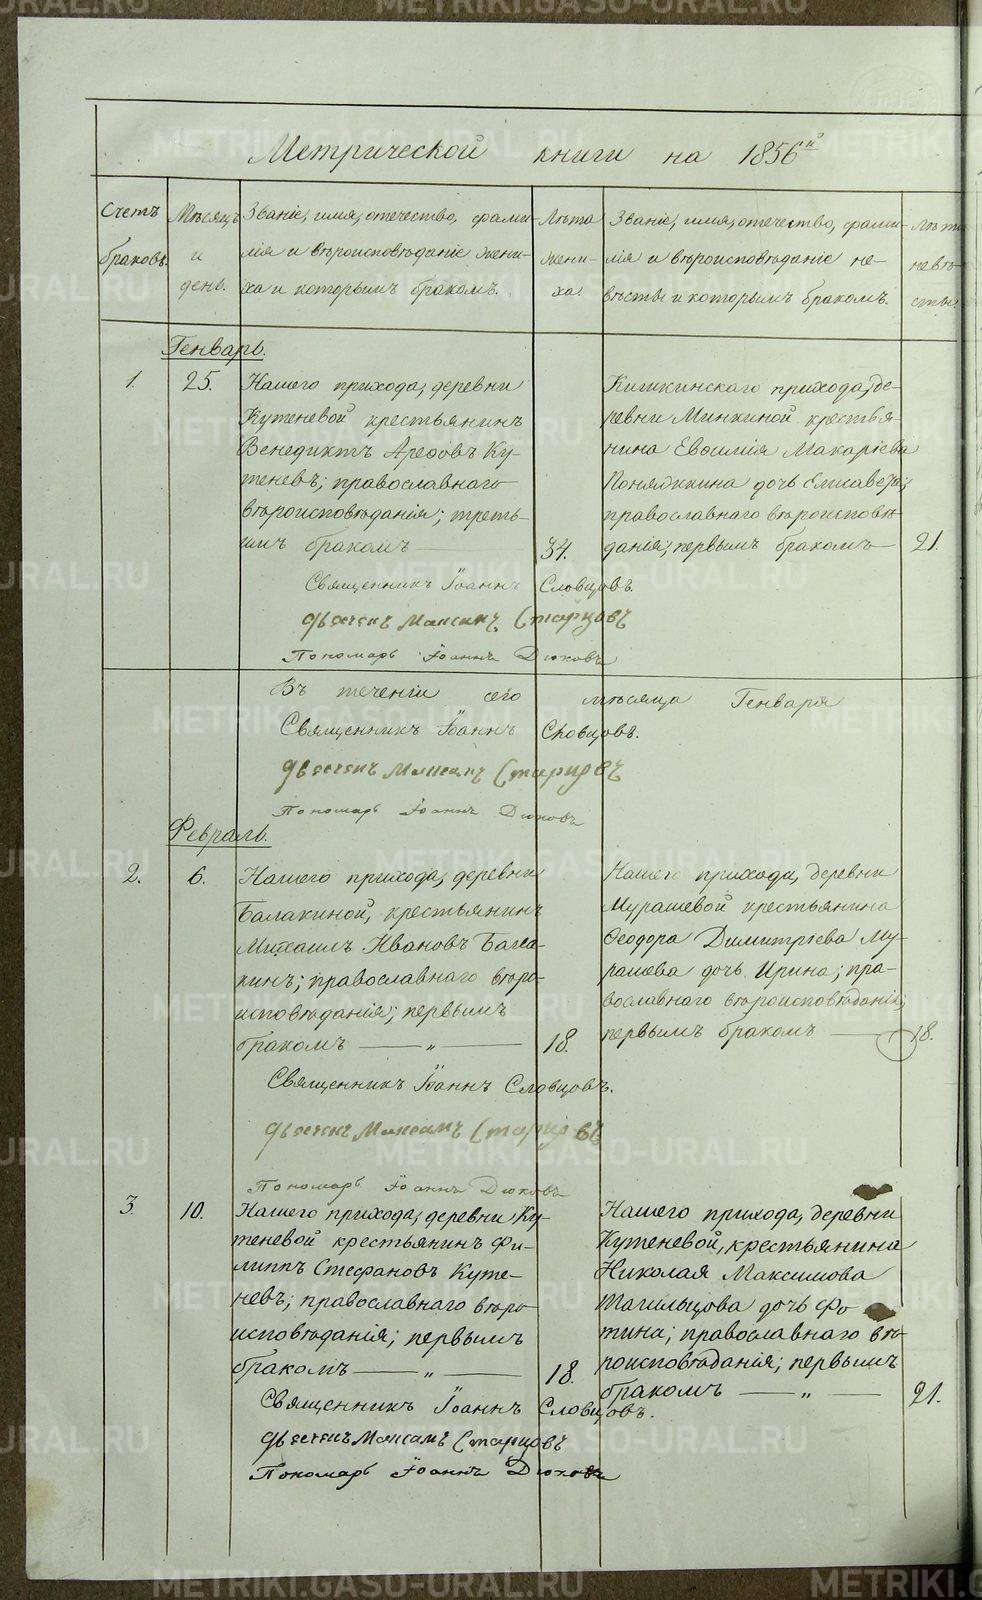 Метрической книги на 1856й
Счетъ браковъ.
Мѣсяцъ и день.
Званіе, имя, отечество, фами-
лія и вѣроисповѣданіе жени-
ха и которымъ бракомъ.
Лѣта жени-
ха.
Званіе, имя, отечество, фами-
лія и вѣроисповѣданіе не-
вѣсты и которымъ бракомъ.
Лѣта
невѣ-
сты.
Генварь.
1.
25.
Нашего прихода, деревни
Кутеневой крестьянинъ
Венедиктъ Арефовъ Ку-
теневъ; православнаго
вѣроисповѣданія; треть-
имъ бракомъ
34.
Кишкинскаго прихода, де-
ревни Минкиной крестья-
нина Евѳимія Макаріева
дочь Елисавета;
православнаго вѣроисповѣ-
данія; первымъ бракомъ
21.
Священникъ Іоаннъ Словцовъ.
Дьячекъ Максимъ Старцовъ
Пономарь Іоаннъ Дюковъ
Въ теченіи сего мѣсяца Генваря
Священникъ Іоаннъ Словцовъ.
Дьячекъ Максимъ Старцовъ
Пономарь Іоаннъ Дюковъ
Февраль.
2.
6.
Нашего прихода, деревни
Балакиной, крестьянинъ
Михаилъ Ивановъ Бала-
кинъ; православнаго вѣро-
исповѣданія; первымъ
бракомъ — „ —
18.
Нашего прихода, деревни
Мурашевой крестьянина
Ѳеодора Димитріева Му-
рашева дочь Ирина; пра-
вославнаго вѣроисповѣданія;
первымъ бракомъ —
18.
Священникъ Іоаннъ Словцовъ.
Дьячекъ Максимъ Старцовъ
Пономарь Іоаннъ Дюковъ
3.
10.
Нашего прихода, деревни Ку-
теневой крестьянинъ Фи-
липпъ Стефановъ Куте-
невъ; православнаго вѣро-
исповѣданія; первымъ
бракомъ — „ —
18.
Нашего прихода, деревни
Кутеневой, крестьянина
Николая Максимова
Тагильцова дочь Фо-
тина; православнаго вѣ-
роисповѣданія; первымъ
бракомъ — „ —
21.
Священникъ Іоаннъ Словцовъ.
Дьячекъ Максимъ Старцовъ
Пономарь Іоаннъ Дюковъ
METRIKI.GASO-URAL.RU